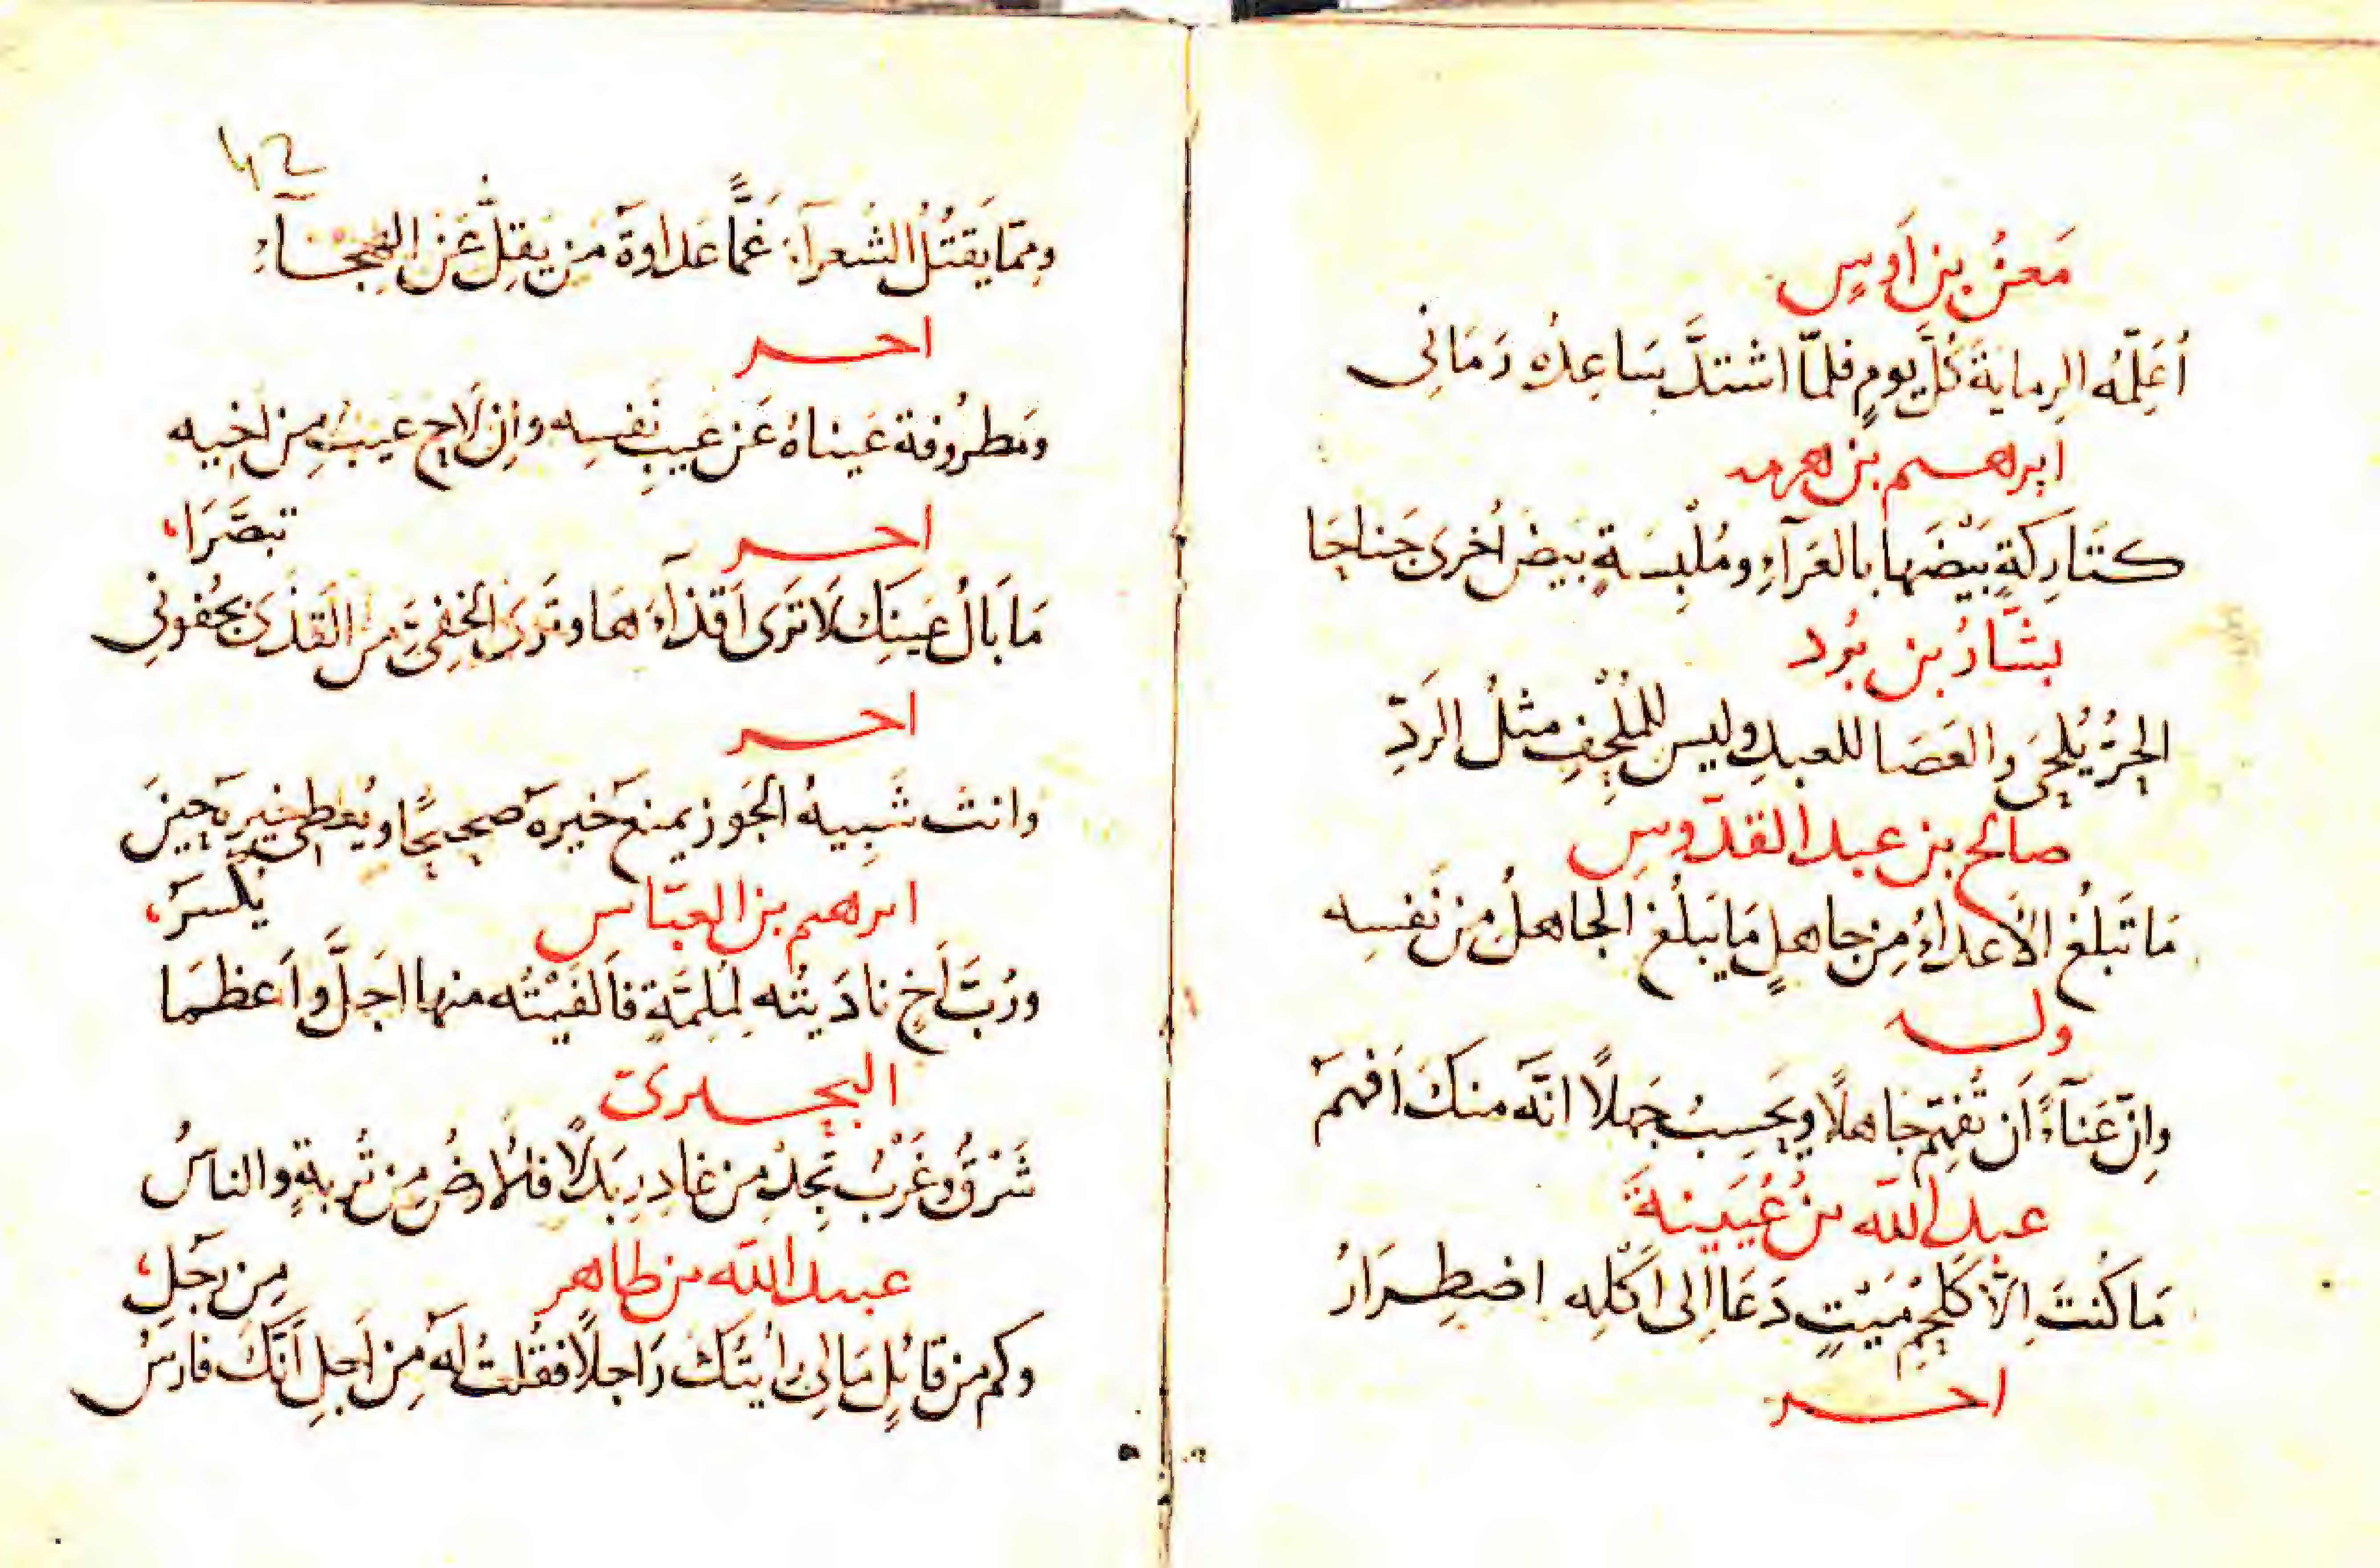 مَعنُ بنِ اَوسٍ
أعَلِّمُه الرِمايةَ كُلَّ يومٍ فلمّا اشتدَّ سَاعِدُه رَمَانِى
ابرهيم بن هرمه
كتَارِكةٍ بَيْضَها بالعَرَآءِ ومُلْبِسَةٍ بيضَ أخرى جَناحَا
بشَّارُ بن بُرد
الحُرُّ يُلحَى والعَصَا للعبدِ وليس للمُلْحِفِ مثلُ الرَدِّ
صالح بن عبد القدّوسِ
مَا تَبلُغُ الاَعداءُ مِن جاهلٍ مَا يَبلُغ الجاهلُ مِن نَفسِه
وله
وإنّ عَنَآءً أن تُفهِّمَ جاهلًا ويَحسِبُ جَهلًا انَّه منكَ اَفهَمُ
عبد الله بنُ عُيَينةَ
مَا كُنتَ اِلّا كَلحمِ مَيْتٍ دَعَا اِلى اَكْلِه اضطِرَارُ
اخر
42
وممّا يَقتُلُ الشُعرآءَ غَمًّا عَداوةُ مَن يَقِلُّ عَنِ الهِجَآءِ
اخر
ومَطرُوفة عَيناهُ عَن عَيبِ نَفسِه وإن لَاح عيبٌ مِن اَخيه
تبصَّرَا
اخر
مَا بَالُ عَينِك لَا تَرَى اَقذآءَهَا وتَرَى الخفِىَّ مِن القَذَى بجُفونِى
اخر
وانتَ شَبِيهُ الجَوز يمنع خَيرَه صحيحًا ويُعطِى خيرَه حِينَ
يُكْسَرُ
ابرهيم بن العبّاس
ورُبَّ اَخٍ نادَيتُه لمُلِمَّةٍ فاَلفَيْتُه منها اجَلَّ واَعظَمَا
البحترىّ
شَرِّقْ وغَرِّبْ تَجِدْ مِن غادِرٍ بَدَلًا فالأرضُ مِن تُربةٍ والناسُ
مِن رَجُلِ
عبيد الله بن طاهر
وكم مِن قائِلٍ مَا لِى رأيتُك رَاجلًا فقُلتُ لَه مِن اَجلِ اَنَّكَ فارسُ